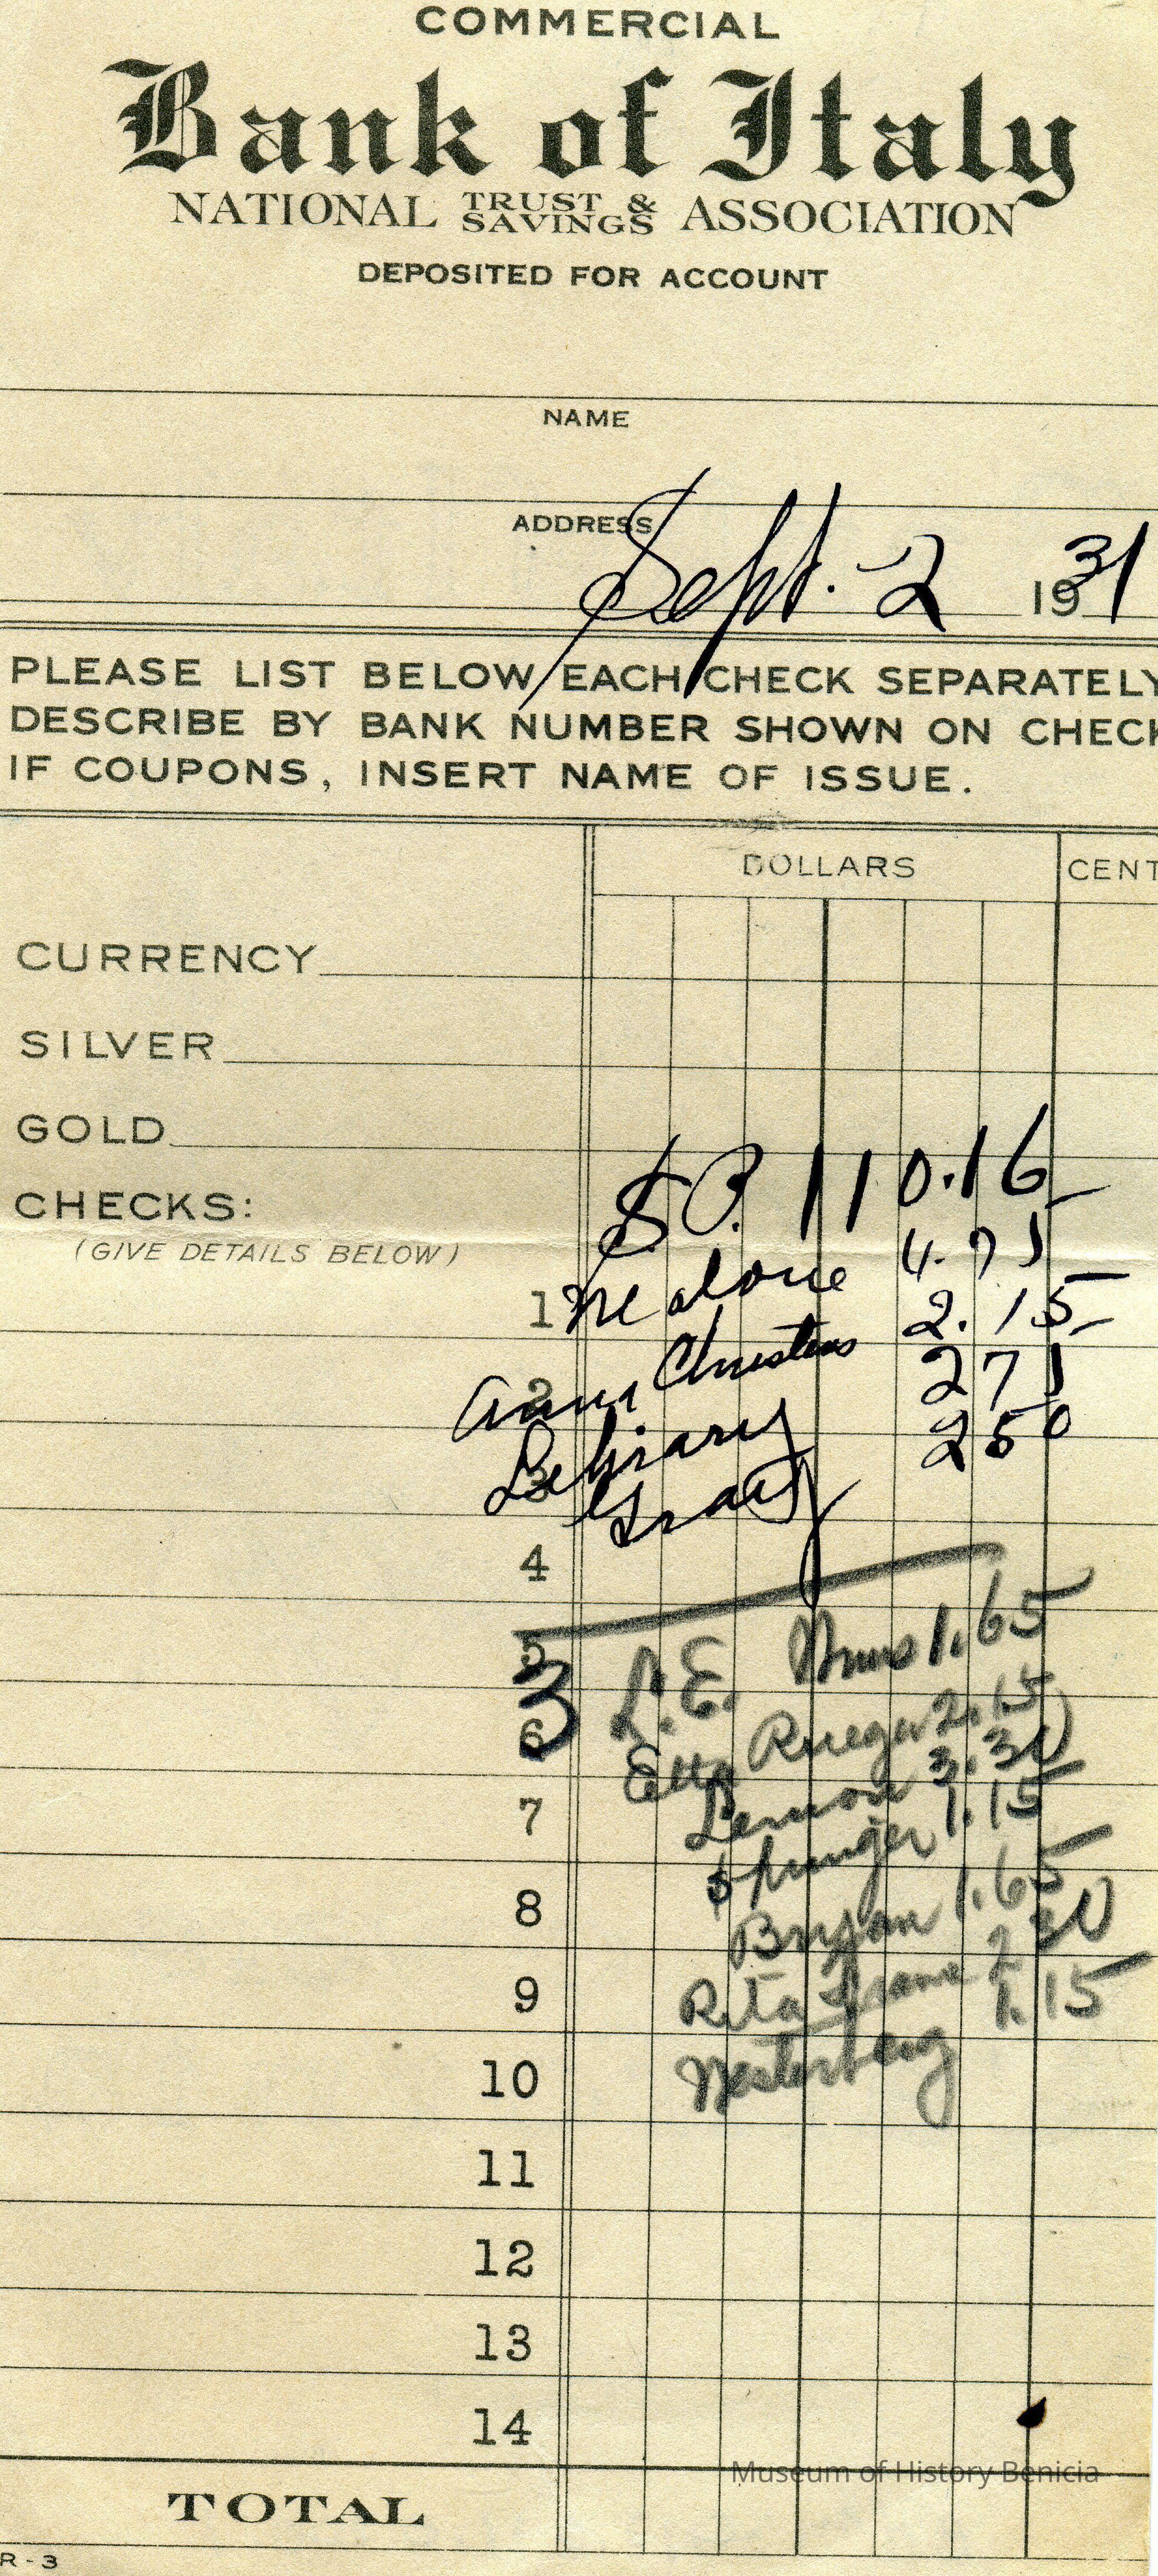 COMMERCIAL
Bank of Italy
NATIONAL TRUST & SAVINGS ASSOCIATION
DEPOSITED FOR ACCOUNT
NAME
ADDRESS
Sept. 2 1931
PLEASE LIST BELOW EACH CHECK SEPARATELY
DESCRIBE BY BANK NUMBER SHOWN ON CHECK
IF COUPONS, INSERT NAME OF ISSUE.
DOLLARS CENT
CURRENCY
SILVER
GOLD
CHECKS: S.P. 110.16
(GIVE DETAILS BELOW)
1 4.75
2 Anna Christens 2.15
3 Library 271
Gray 250
4
5 L.E. 1.65
3
6 Etta Rueger 2.15
Lemon 3.30
7 1.15
8 Bryan 1.65
9 Rita 2 30
10 Westerberg 1.15
11
12
13
14
Museum of History Benicia
TOTAL
R-3